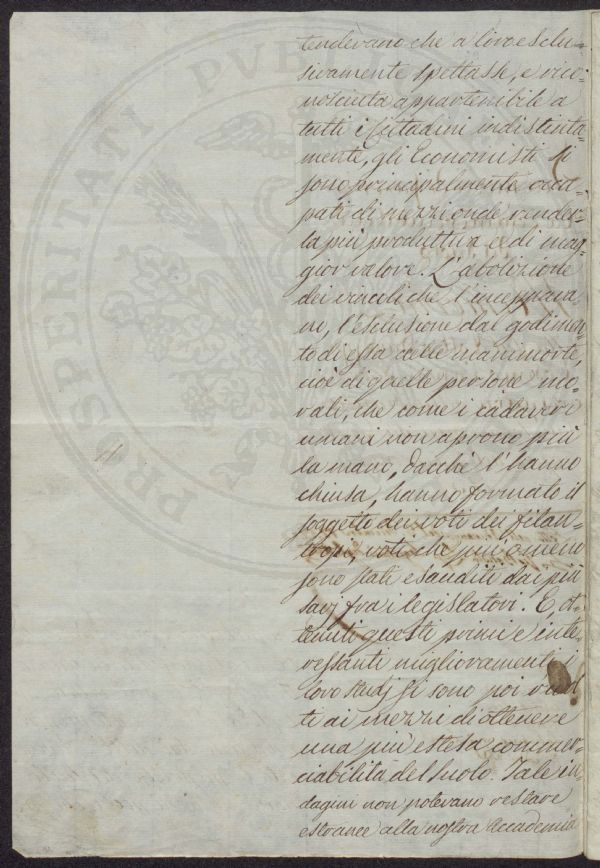 PROSPERITATI PVBLICAE
tendevano che a loro esclu-
sivamente spettasse, e rico-
nosciuta appartenibile a
tutti i Cittadini indistinta-
mente, gli Economisti si
sono principalmente occu-
pati di mezzi onde render-
la più produttiva e di mag-
gior valore. L'abolizione
dei vincoli che l'inceppava
no, l'esclusione dal godimen-
to di essa delle manimorte,
cioè di quelle persone mo-
rali, che come i cadaveri
umani non aprono più
la mano, dacchè l'hanno
chiusa, hanno formato il
soggetto dei voti dei filan-
tropi, voti che più o meno
sono stati esauditi dai più
savj fra i legislatori. E ot-
tenuti questi primi e inte-
ressanti miglioramenti i
loro studj si sono poi rivol
ti ai mezzi di ottenere
una più estesa commer-
ciabilità del suolo. Tale in-
dagini non potevano restare
estranee alla nostra Accademia